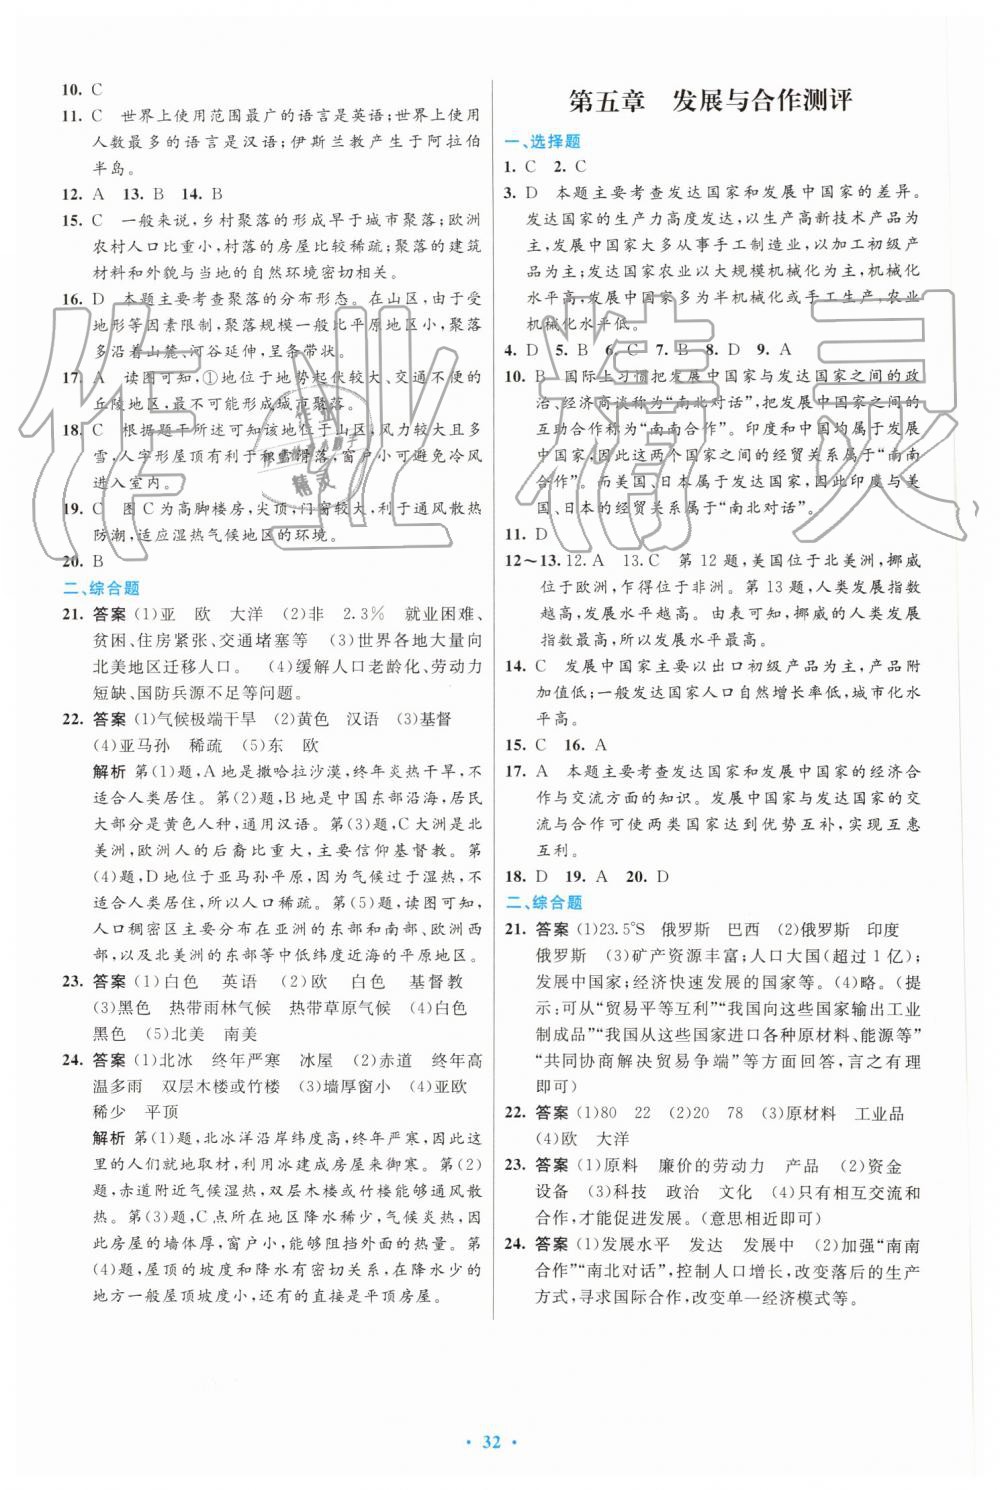 10. C
11. C　世界上使用范围最广的语言是英语;世界上使用
人数最多的语言是汉语;伊斯兰教产生于阿拉伯
半岛。
12. A　13. B　14. B
15. C　一般来说,乡村聚落的形成早于城市聚落;欧洲
农村人口比重小,村落的房屋比较稀疏;聚落的建筑
材料和外貌与当地的自然环境密切相关。
16. D　本题主要考查聚落的分布形态。在山区,由于受
地形等因素限制,聚落规模一般比平原地区小,聚落
多沿着山麓、河谷延伸,呈条带状。
17. A　读图可知,①地位于地势起伏较大、交通不便的
丘陵地区,最不可能形成城市聚落。
18. C　根据题干所述可知该地位于山区,风力较大且多
雪,人字形屋顶有利于积雪滑落,窗户小可避免冷风
进入室内。
19. C　图C为高脚楼房,尖顶,门窗较大,利于通风散热
防潮,适应湿热气候地区的环境。
20. B
二、综合题
21. 答案　(1)亚　欧　大洋　(2)非　2.3%　就业困难、
贫困、住房紧张、交通堵塞等　(3)世界各地大量向
北美地区迁移人口。　(4)缓解人口老龄化、劳动力
短缺、国防兵源不足等问题。
22. 答案　(1)气候极端干旱　(2)黄色　汉语　(3)基督
(4)亚马孙　稀疏　(5)东　欧
解析　第(1)题,A地是撒哈拉沙漠,终年炎热干旱,不
适合人类居住。第(2)题,B地是中国东部沿海,居民
大部分是黄色人种,通用汉语。第(3)题,C大洲是北
美洲,欧洲人的后裔比重大,主要信仰基督教。第
(4)题,D地位于亚马孙平原,因为气候过于湿热,不
适合人类居住,所以人口稀疏。第(5)题,读图可知,
人口稠密区主要分布在亚洲的东部和南部、欧洲西
部,以及北美洲的东部等中低纬度近海的平原地区。
23. 答案　(1)白色　英语　(2)欧　白色　基督教
(3)黑色　热带雨林气候　热带草原气候　(4)白色
黑色　(5)北美　南美
24. 答案　(1)北冰　终年严寒　冰屋　(2)赤道　终年高
温多雨　双层木楼或竹楼　(3)墙厚窗小　(4)亚欧
稀少　平顶
解析　第(1)题,北冰洋沿岸纬度高,终年严寒,因此这
里的人们就地取材,利用冰建成房屋来御寒。第(2)
题,赤道附近气候湿热,双层木楼或竹楼能够通风散
热。第(3)题,C点所在地区降水稀少,气候炎热,因
此房屋的墙体厚,窗户小,能够阻挡外面的热量。第
(4)题,屋顶的坡度和降水有密切关系,在降水少的
地方一般屋顶坡度小,还有的直接是平顶房屋。
第五章　发展与合作测评
一、选择题
1. C　2. C
3. D　本题主要考查发达国家和发展中国家的差异。
发达国家的生产力高度发达,以生产高新技术产品为
主,发展中国家大多从事手工制造业,以加工初级产
品为主;发达国家农业以大规模机械化为主,机械化
水平高,发展中国家多为半机械化或手工生产,农业
机械化水平低。
4. D　5. B　6. C　7. B　8. D　9. A
10. B　国际上习惯把发展中国家与发达国家之间的政
治、经济商谈称为“南北对话”,发展中国家之间的
互助合作称为“南南合作”。印度和中国均属于发展
中国家,因此这两个国家之间的经贸关系属于“南南
合作”。而美国、日本属于发达国家,因此印度与美
国、日本的经贸关系属于“南北对话”。
11. D
12～13. 12. A　13. C　第12题,美国位于北美洲,挪威
位于欧洲,乍得位于非洲。第13题,人类发展指数
越高,发展水平越高。由表可知,挪威的人类发展
指数最高,所以发展水平最高。
14. C　发展中国家主要以出口初级产品为主,产品附
加值低;一般发达国家人口自然增长率低,城市化水
平高。
15. C　16. A
17. A　本题主要考查发达国家和发展中国家的经济合
作与交流方面的知识。发展中国家与发达国家的交
流与合作可使两类国家达到优势互补,实现互惠
互利。
18. D　19. A　20. D
二、综合题
21. 答案　(1)23.5°S　俄罗斯　巴西　(2)俄罗斯　印度
俄罗斯　(3)矿产资源丰富;人口大国(超过1亿);
发展中国家;经济快速发展的国家等。(4)略。(提
示:可从“贸易平等互利”“我国向这些国家输出工业
制成品”“我国从这些国家进口各种原材料、能源等”
“共同协商解决贸易争端”等方面回答,言之有理
即可)
22. 答案　(1)80　22　(2)20　78　(3)原材料　工业品
(4)欧　大洋
23. 答案　(1)原料　廉价的劳动力　产品　(2)资金
设备　(3)科技　政治　文化　(4)只有相互交流和
合作,才能促进发展。(意思相近即可)
24. 答案　(1)发展水平　发达　发展中　(2)加强“南南
合作”“南北对话”,控制人口增长,改变落后的生产
方式,寻求国际合作,改变单一经济模式等。
· 32 ·
作业精灵